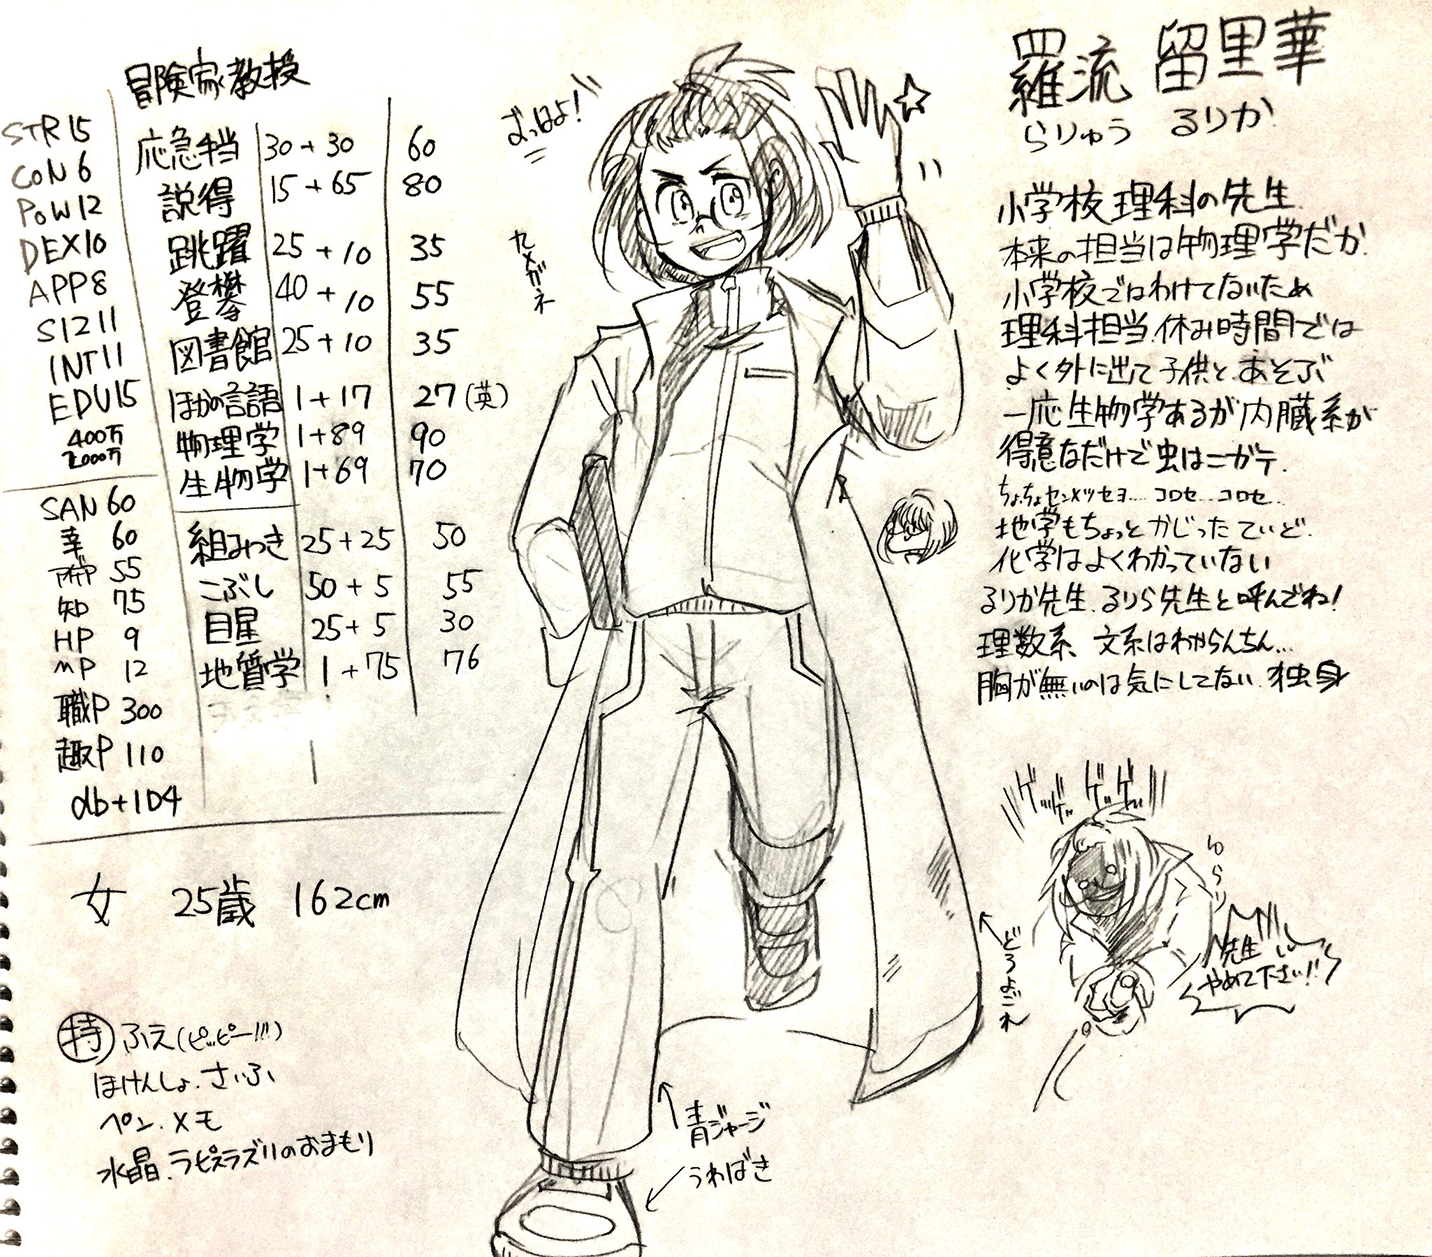 冒険家教授
STR 15
CON 6
POW 12
DEX 10
APP 8
SIZ 11
INT 11
EDU 15
400万
2000万
SAN 60
幸 60
アイデア 55
知 75
HP 9
MP 12
職P 300
趣P 110
db+1D4
応急手当 30+30 60
説得 15+65 80
跳躍 25+10 35
登攀 40+10 55
図書館 25+10 35
ほかの言語 1+17 27(英)
物理学 1+89 90
生物学 1+69 70
組みつき 25+25 50
こぶし 50+5 55
目星 25+5 30
地質学 1+75 76
女 25歳 162cm
特 ふえ(ピッピー!!!)
ほけんしょ.さいふ
ペン.メモ
水晶.ラピスラズリのおまもり
おっはよ!
メガネ
青ジャージ
うわばき
どろよごれ
羅流 留里華
らりゅう るりか
小学校理科の先生.
本来の担当は物理学だが.
小学校ではわけてないため
理科担当.休み時間では
よく外に出て子供とあそぶ
一応生物学あるが内臓系が
得意なだけで虫はニガテ.
ちょちょセンメツセヨ.... コロセ...コロセ..
地学もちょっとかじったていど.
化学はよくわかっていない
るりか先生.るりら先生と呼んでね!
理数系、文系はわからんちん...
胸が無いのは気にしてない.独身
ゲッゲッ ゲッゲッ
ゆらり
先生
やめて下さい!!